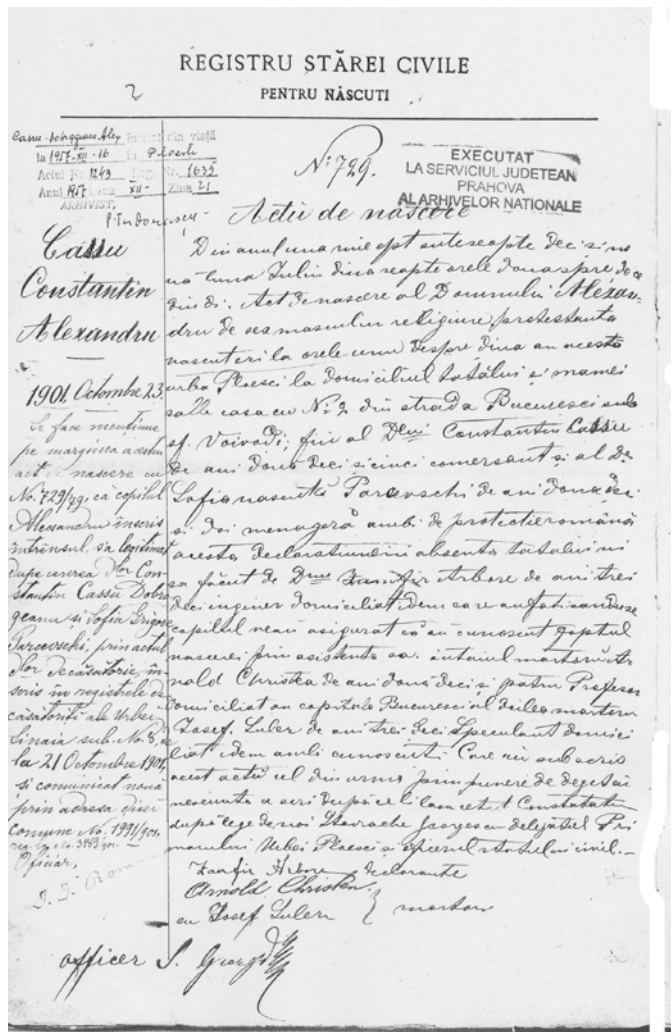 REGISTRU STĂREI CIVILE
PENTRU NĂSCUTI
2
Cassu-Dobrogeanu Alex din viață
la 1957-XII-16 in Ploesti
Actul Nr. 1243 Reg. Nr. 1632
Anul 1957 Luna XII- Ziua 21
ARHIVIST,
No 729.
EXECUTAT
LA SERVICIUL JUDETEAN
PRAHOVA
AL ARHIVELOR NATIONALE
Actu de nascere
Cassu
Constantin
Alexandru
1901. Octombre 23.
Se face mentiune
pe marginea acestui
act de nascere cu
No. 729/79, că copilul
Alecsandru inscris
intrênsul, s'a legitimat
dupe cererea Dlor Con-
stantin Cassu Dobro
geanu și Sofia Grigore
Parcevski, prin actul
lor de căsătorie, în-
scris în registrele de
căsătoriți ale Urbei
Sinaia sub No. 8, 
la 21 Octombre 1901,
și comunicat nouă
prin adresa disei
Comune No. 1991/901,
reg. la No. 3189
Oficiar,
Din anul una mie opt sute șeapte deci și no
uă luna Iuliu dioa șeapte orele doua spre dece
din di. Act de nascere al Domnului Alexan-
dru de sex masculin religiune protestanta
nascut eri la orele unu despre dioa an acesta
urba Ploesci la domiciliul tatălui și mamei
salle casa cu No 2 din strada Bucuresci sub
sf. Voivodi; fiu al Dlui Constantin Cassu
de ani două deci și cinci comersant și al D.
Sofia nascută Parcevschi de ani doua deci
și doi menageră ambi de protectie română
acesta declaratiune in absenta tatalui ni
sa făcut de Dnu Zamfir Arbore de ani trei
deci inginer domiciliat idem care au fatisandu-se
copilul neau asigurat că au cunoscut faptul
nascerei prin asistenta sa. intaiul martor Ar
nold Christea de ani două deci și patru Profesor
domiciliat an capitala Bucuresci al doilea martor
Iosef Luler de ani trei deci Speculant domici
liat idem ambi cunoscuti. Care au subscris
acest actu cel din urma prin punere de deget
nesciind a scri după ce li l'am cetit Constatatu
după lege de noi Georgescu delegatul Pri
marului Urbei Ploesci și oficerul statului civil.
Zamfir Arbore declarante
Arnold Christea
eu Iosef Luler } martori
officer S. Georg